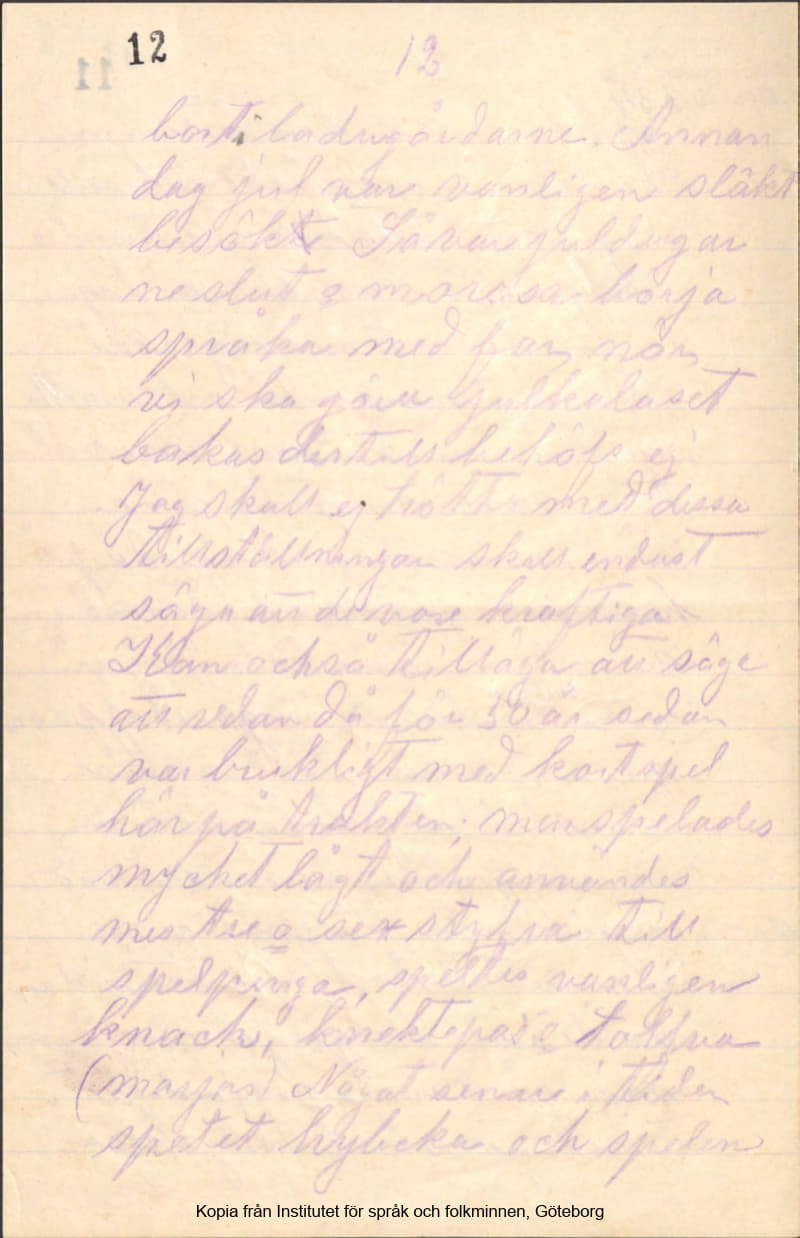 12
12
11
bort i ladugårdarne. Annan
dag jul var vanligen släkt
besökte Så var juldagar
ne slut o mor sa börja
språka med far, när
vi ska göra julkalaset
bakas dertill behöfs ej
Jag skall ej trötta med dessa
tillställningar skall endast
säga att de voro kraftiga
Kan också tillåga att säge
att redan då för 50 år sedan
var brukligt med kortspel
här på trakten, men spelades
mycket lågt och användes
mes tre o sex styfra till
spelpänga, speltes vanligen
knack, knektepas o tolfva
(marjas) Något senare i tiden
spelet och spelen
Kopia från Institutet för språk och folkminnen, Göteborg